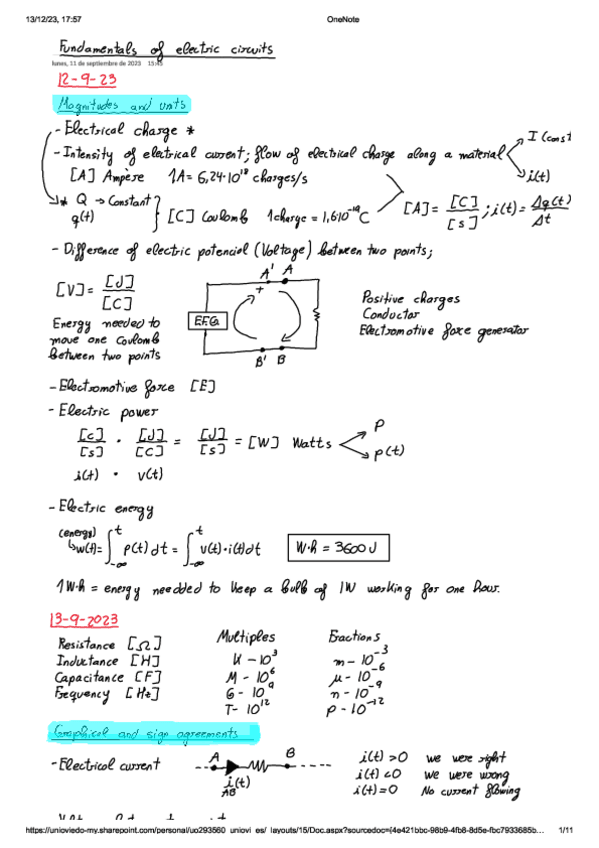 13/12/23, 17:57 OneNote
Fundamentals of electric circuits
lunes, 11 de septiembre de 2023 15:45
12-9-23
Magnitudes and units
- Electrical charge *
- Intensity of electrical current; flow of electrical charge along a material
I (const
i(t)
[A] Ampere 1A = 6,24·10¹⁸ charges/s
* Q → Constant
q(t)
[C] Coulomb 1charge = 1,6·10⁻¹⁹ C
[A] = [C]/[s] ; i(t) = Δq(t)/Δt
- Difference of electric potencial (Voltage) between two points;
[V] = [J]/[C]
Energy needed to
move one Coulomb
between two points
A' A
+
E.F.G
B' B
Positive charges
Conductor
Electromotive force generator
- Electromotive force [E]
- Electric power
[C]/[s] · [J]/[C] = [J]/[s] = [W] Watts
P
p(t)
i(t) · v(t)
- Electric energy
(energy)
w(t) = ∫_{-∞}^{t} p(t) dt = ∫_{-∞}^{t} v(t)·i(t)dt
W·h = 3600 J
1W·h = energy needded to keep a bulb of 1W working for one hour.
13-9-2023
Resistance [Ω]
Inductance [H]
Capacitance [F]
Frequency [Hz]
Multiples
K - 10³
M - 10⁶
G - 10⁹
T - 10¹²
Fractions
m - 10⁻³
μ - 10⁻⁶
n - 10⁻⁹
p - 10⁻¹²
Graphical and sign agreements
- Electrical current
A B
i(t)
AB
i(t) >0 we were right
i(t) <0 we were wrong
i(t) =0 No current flowing
https://unioviedo-my.sharepoint.com/personal/uo293560_uniovi_es/_layouts/15/Doc.aspx?sourcedoc={4e421bbc-98b9-4fb8-8d5e-fbc7933685b… 1/11